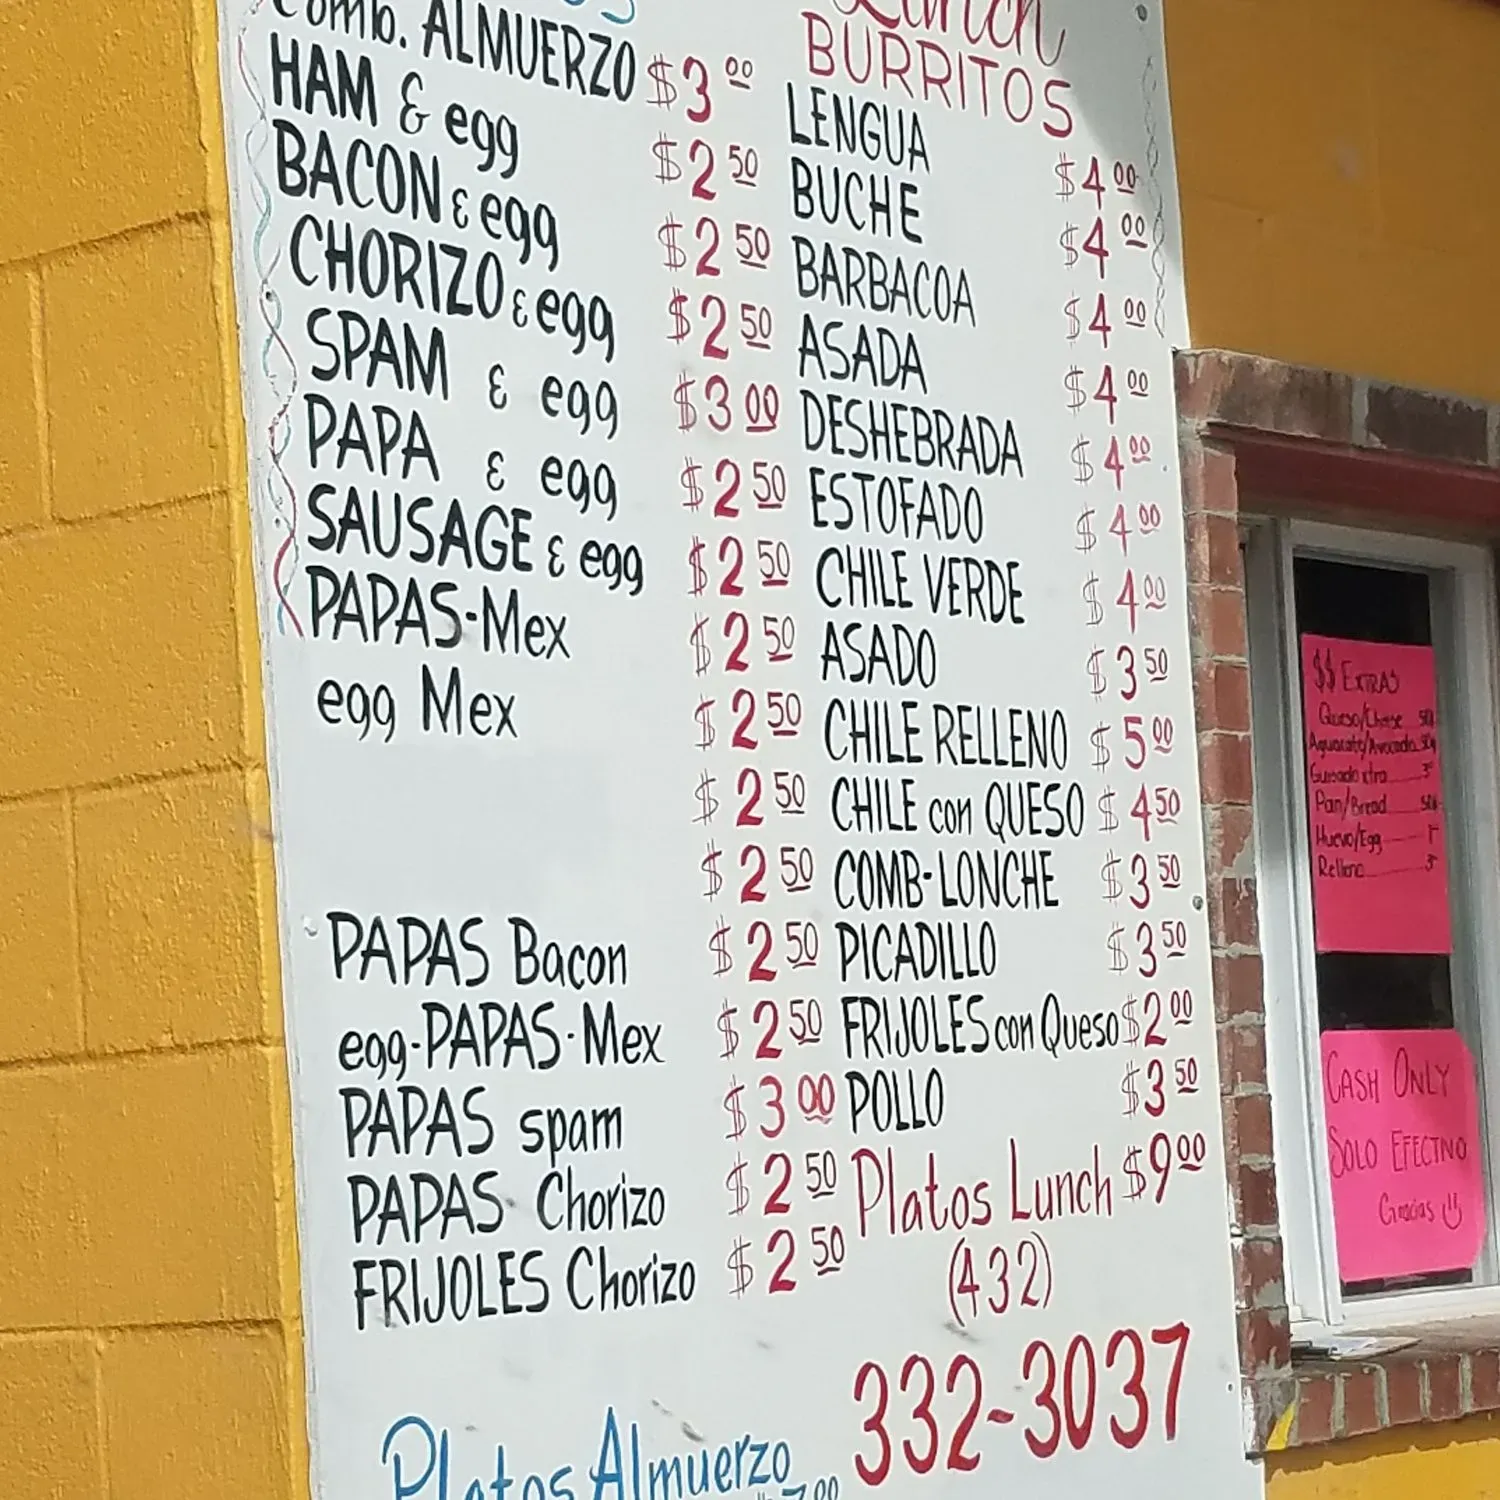 Comb. ALMUERZO $3 00
HAM & egg $2 50
BACON & egg $2 50
CHORIZO & egg $2 50
SPAM & egg $3 00
PAPA & egg $2 50
SAUSAGE & egg $2 50
PAPAS-Mex $2 50
egg Mex $2 50
$2 50
$2 50
PAPAS Bacon $2 50
egg-PAPAS-Mex $2 50
PAPAS spam $3 00
PAPAS Chorizo $2 50
FRIJOLES Chorizo $2 50
Platos Almuerzo
Lunch
BURRITOS
LENGUA $4 00
BUCHE $4 00
BARBACOA $4 00
ASADA $4 00
DESHEBRADA $4 00
ESTOFADO $4 00
CHILE VERDE $4 00
ASADO $3 50
CHILE RELLENO $5 00
CHILE con QUESO $4 50
COMB-LONCHE $3 50
PICADILLO $3 50
FRIJOLES con Queso $2 00
POLLO $3 50
Platos Lunch $9 00
(432)
332-3037
$$ EXTRAS
Queso/Cheese 50¢
Aguacate/Avocado 50¢
Guisado xtra
Pan/Bread 50¢
Huevo/Egg
Relleno
CASH ONLY
SOLO EFECTIVO
Gracias